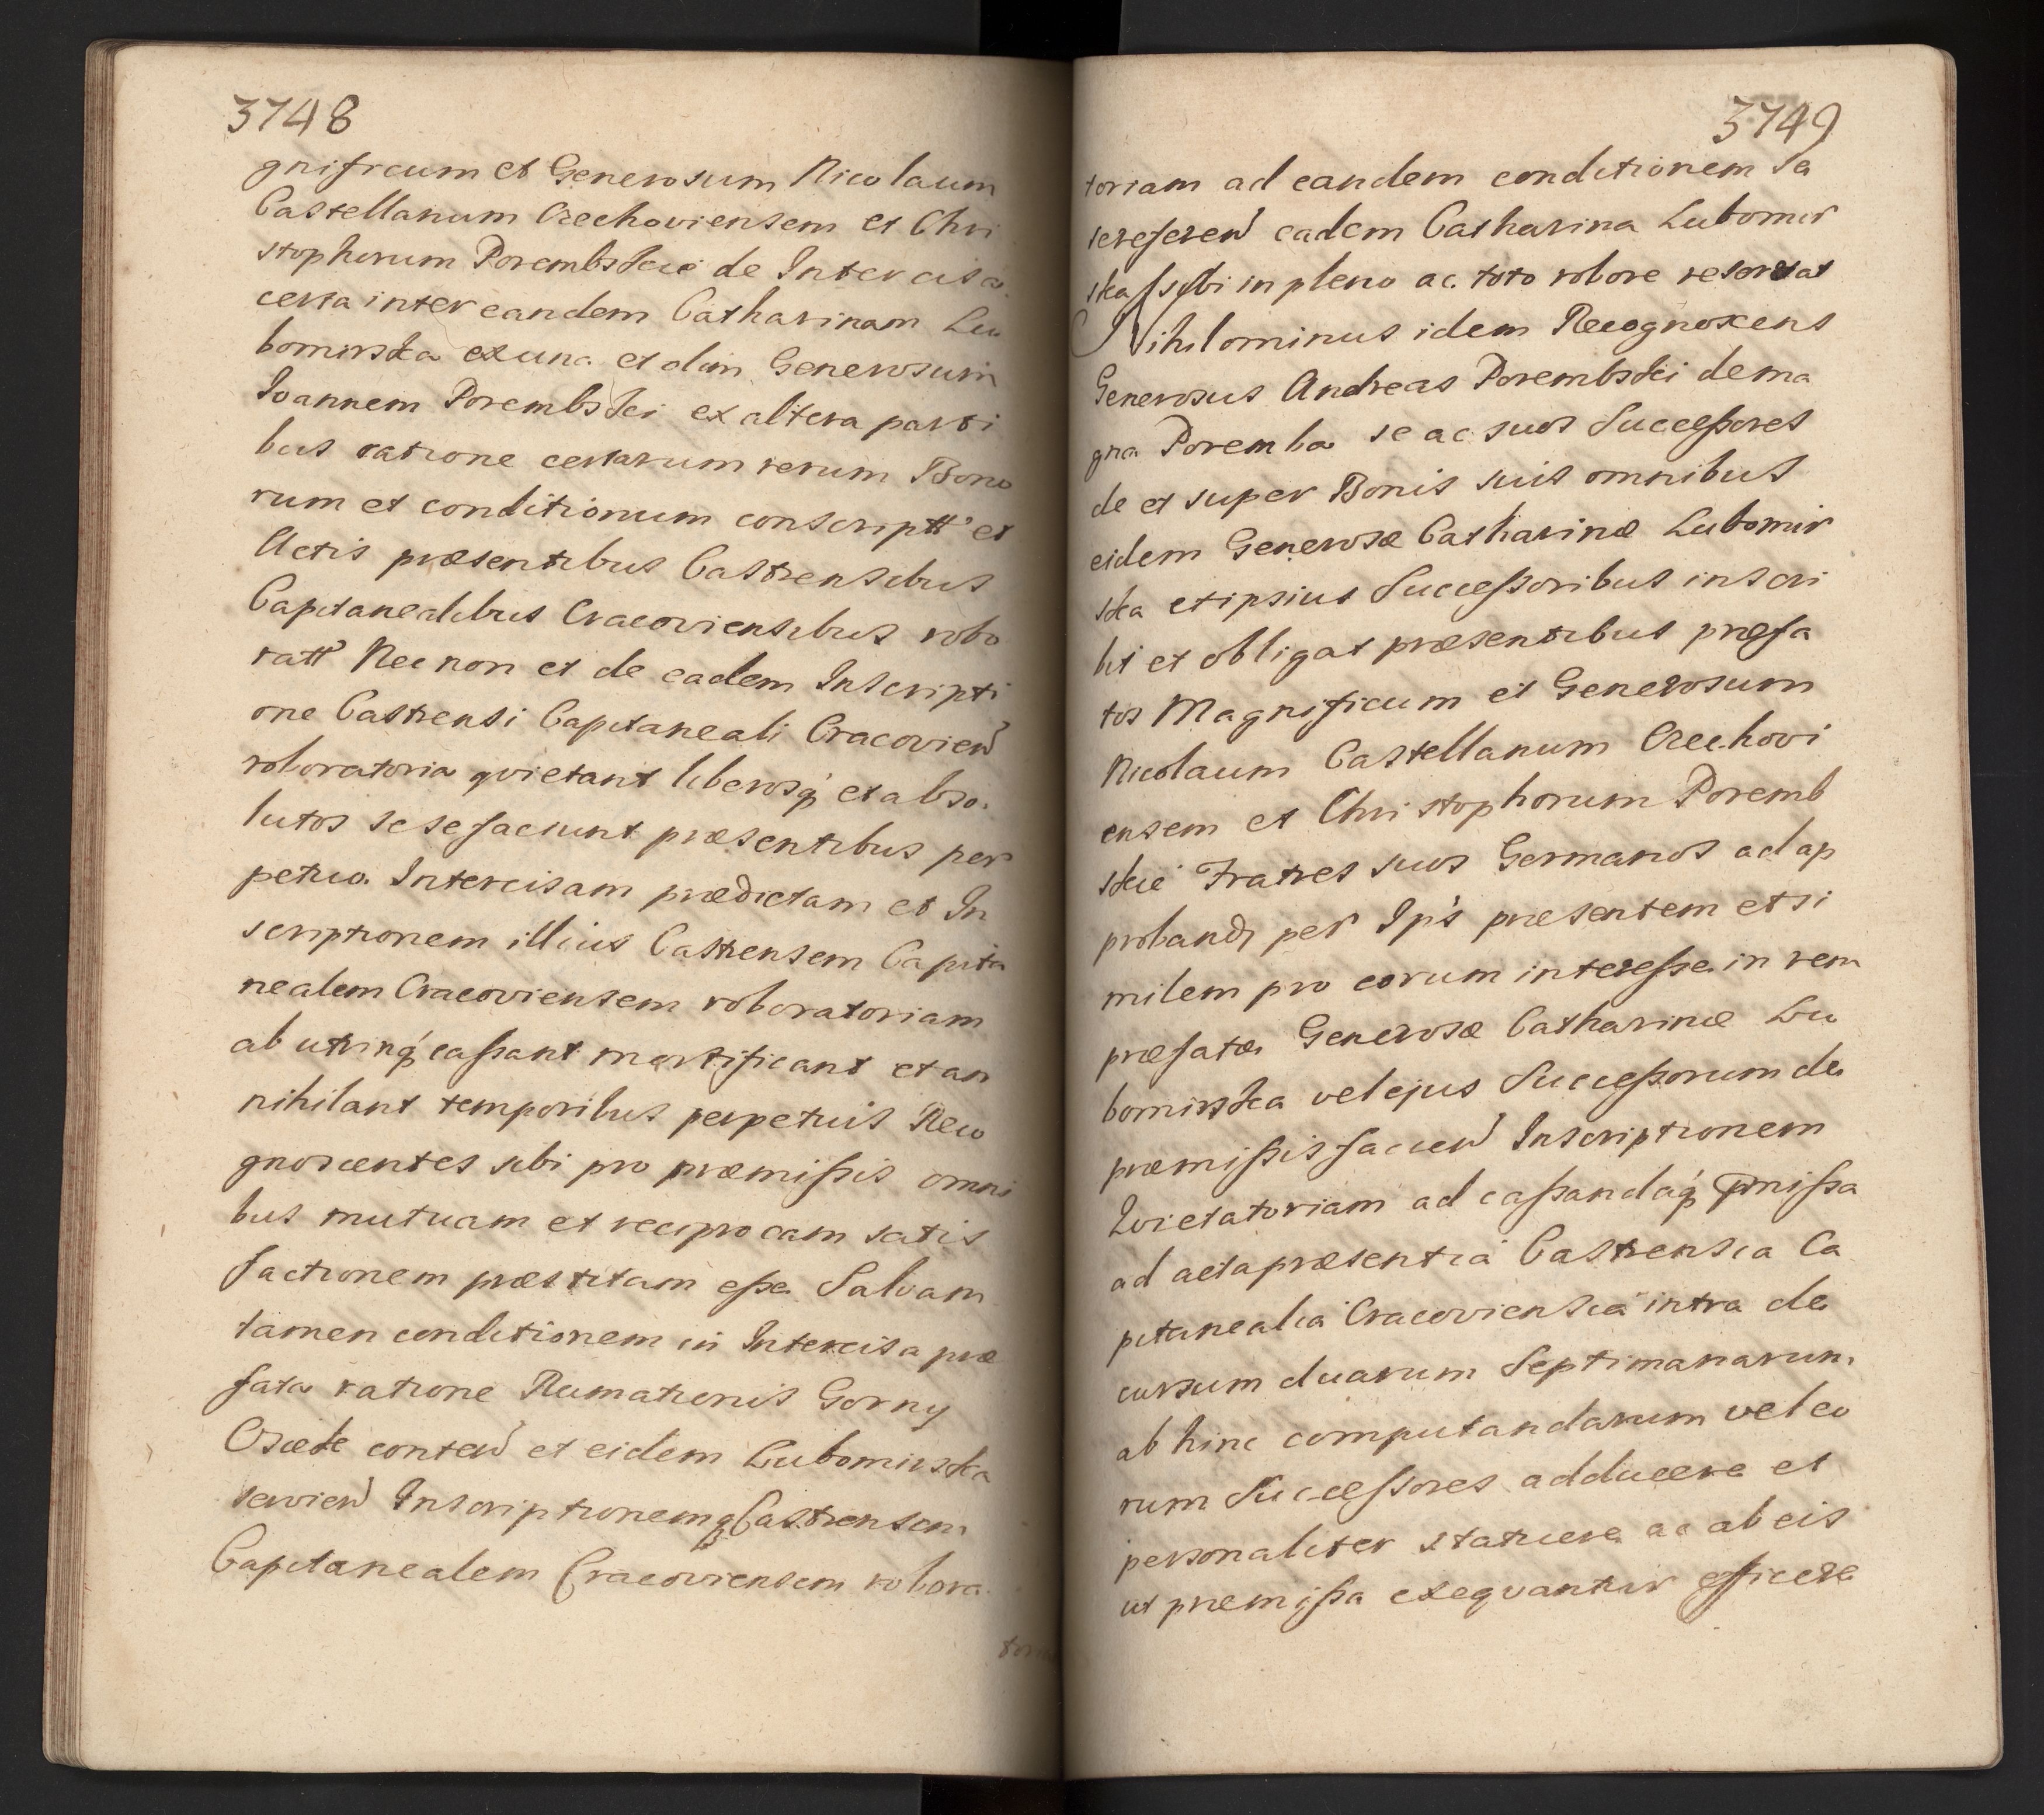 3748
gnificum et Generosum Nicolaum
Castellanum Czechoviensem et Chri
stophorum Porembskie de Intercisa
certa inter eandem Catharinam Lu
bomirska ex una et olim Generosum
Joannem Porembski ex altera parti
bus ratione certarum rerum Bono
rum et conditionum conscriptt et
Actis præsentibus Castrensibus
Capitanealibus Cracoviensibus robo
ratt Nec non et de eadem Inscripti
one Castrensi Capitaneali Cracovien
roboratoria qvietant liberosq et abso
lutos sese faciunt præsentibus per
petuo. Intercisam prædictam et In
scriptionem illius Castrensem Capita
nealem Cracoviensem roboratoriam
ab utrinq caſsant mortificant et an
nihilant temporibus perpetuis Reco
gnoscentes sibi pro præmiſsis omni
bus mutuam et reciprocam satis
factionem præstitam eſse Salvam
tamen conditionem in Intercisa præ
fata ratione Rumationis Gorny
Osiek conten et eidem Lubomirska
servien Inscriptionemq Castrensem
Capitanealem Cracoviensem robora
toria
3749
toriam ad eandem conditionem Se
sereferen eadem Catharina Lubomir
ska sibi in pleno ac toto robore reservat
Nihilominus idem Recognoscens
Generosus Andreas Porembski de ma
gna Poremba se ac suos Succeſsores
de et super Bonis suis omnibus
eidem Generosæ Catharinæ Lubomir
ska et ipsius Succeſsoribus inscri
bit et obligat præsentibus præfa
tos Magnificum et Generosum
Nicolaum Castellanum Czechovi
ensem et Christophorum Poremb
skie Fratres suos Germanos ad ap
proband per Ips præsentem et si
milem pro eorum intereſse in rem
præfatæ Generosæ Catharinæ Lu
bomirska vel ejus Succeſsorum de
præmiſsis facien Inscriptionem
Qvietatoriam ad caſsandaq pmiſsa
ad acta præsentia Castrensia Ca
pitanealia Cracoviensia intra de
cursum duarum Septimanarum
ab hinc computandarum vel eo
rum Succeſsores adducere et
personaliter statuere ac ab eis
ut præmiſsa exeqvantur efficere